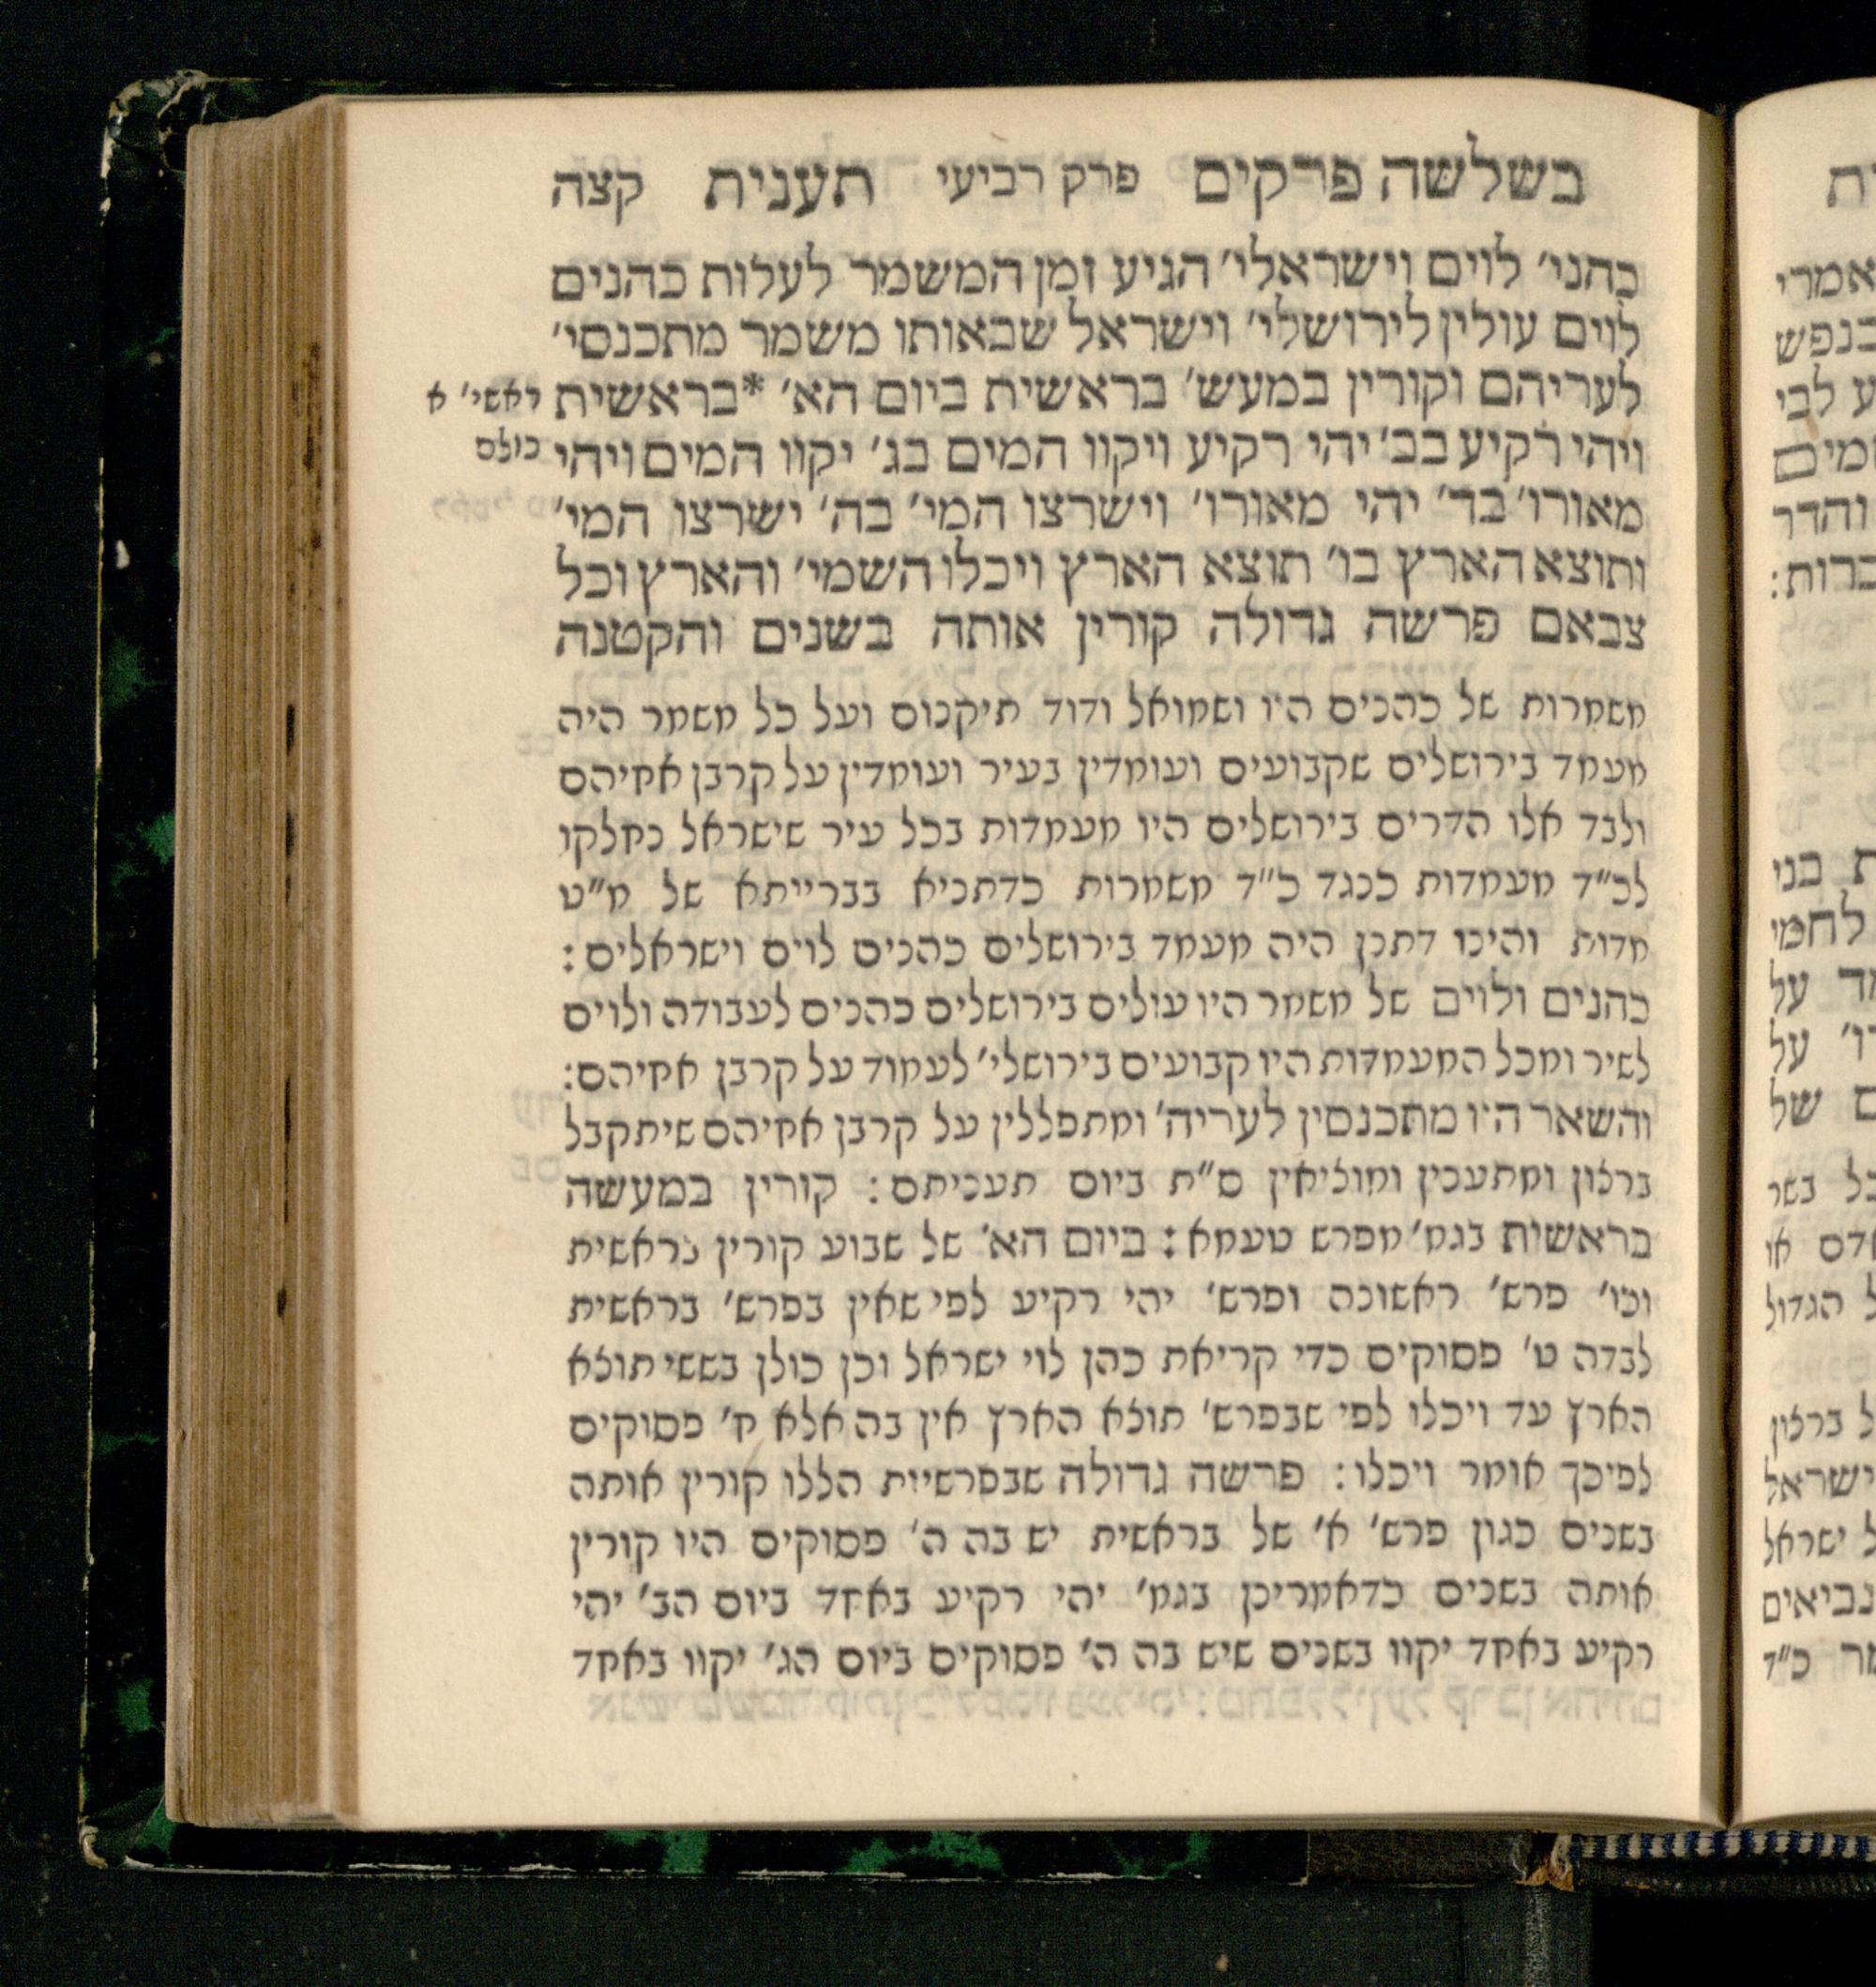 בשלשה פרקים פרק רביעי תענית קצה
כהני׳ לוים וישראלי׳ הגיע זמן המשמר לעלות כהנים
לוים עולין לירושלי׳ וישראל שבאותו משמר מתכנסי׳
לעריהם וקורין במעש׳ בראשית ביום הא׳ *בראשית
ויהי רקיע בב׳ יהי רקיע ויקוו המים בג׳ יקוו המים ויהי
מאורו׳ בד׳ יהי מאורו׳ וישרצו המי׳ בה׳ ישרצו המי׳
ותוצא הארץ בו׳ תוצא הארץ ויכלו השמי׳ והארץ וכל
צבאם פרשה גדולה קורין אותה בשנים והקטנה
ראשי׳ א
כולם
משמרות של כהנים היו ושמואל ודוד תיקנום ועל כל משמר היה
מעמד בירושלים שקבועים ועומדין בעיר ועומדין על קרבן אחיהם
ולבד אלו הדרים בירושלים היו מעמדות בכל עיר שישראל נחלקו
לכ״ד מעמדות כנגד כ״ד משמרות כדתניא בברייתא של מ״ט
מדות והיכו דתנן היה מעמד בירושלים כהנים לוים וישראלים:
כהנים ולוים של משמר היו עולים בירושלים כהנים לעבודה ולוים
לשיר ומכל המעמדות היו קבועים בירושלי׳ לעמוד על קרבן אחיהם:
והשאר היו מתכנסין לעריה׳ ומתפללין על קרבן אחיהם שיתקבל
ברצון ומתענין ומוציאין ס״ת ביום תעניתם: קורין במעשה
בראשית בגמ׳ מפרש טעמא: ביום הא׳ של שבוע קורין בראשית
וכו׳ פרש׳ ראשונה ופרש׳ יהי רקיע לפי שאין בפרש׳ בראשית
לבדה ט׳ פסוקים כדי קריאת כהן לוי ישראל וכן כולן בששי תוצא
הארץ עד ויכלו לפי שבפרש׳ תוצא הארץ אין בה אלא ח׳ פסוקים
לפיכך אומר ויכלו: פרשה גדולה שבפרשיות הללו קורין אותה
בשנים כגון פרש׳ א׳ של בראשית יש בה ה׳ פסוקים היו קורין
אותה בשנים כדאמרינן בגמ׳ יהי רקיע באחד ביום הב׳ יהי
רקיע באחד יקוו בשנים שיש בה ה׳ פסוקים ביום הג׳ יקוו באחד